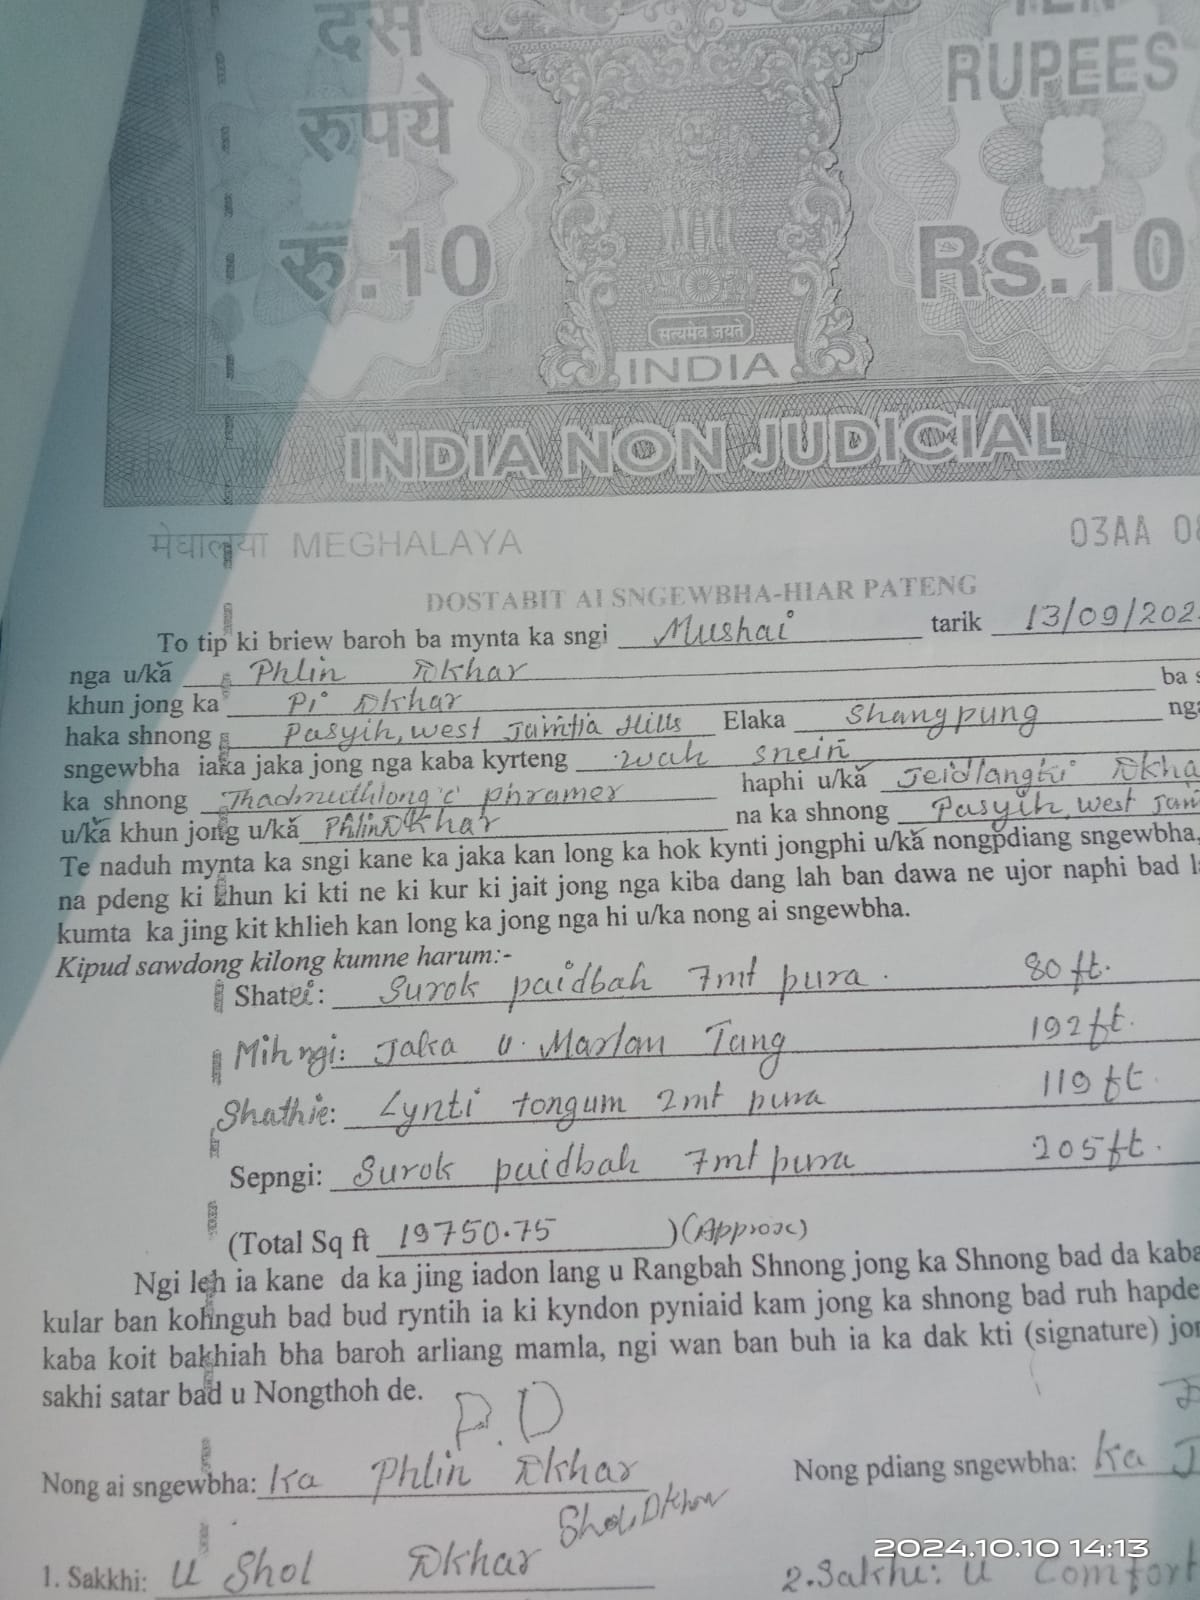 दस
रुपये
TEN
RUPEES
रु.10
Rs.10
सत्यमेव जयते
INDIA
INDIA NON JUDICIAL
मेघालया MEGHALAYA
03AA
DOSTABIT AI SNGEWBHA-HIAR PATENG
To tip ki briew baroh ba mynta ka sngi Mushai tarik 13/09/202
nga u/ka Phlin Dkhar
khun jong ka Pi Dkhar ba s
haka shnong Pasyih, west Jaintia Hills Elaka Shangpung
sngewbha iaka jaka jong nga kaba kyrteng wah snein
ka shnong Thadmuthlong 'c' phramer haphi u/ka Jeidlangki Dkha
u/ka khun jong u/ka Phlin Dkhar na ka shnong Pasyih, west Jain
Te naduh mynta ka sngi kane ka jaka kan long ka hok kynti jongphi u/ka nongpdiang sngewbha,
na pdeng ki khun ki kti ne ki kur ki jait jong nga kiba dang lah ban dawa ne ujor naphi bad
kumta ka jing kit khlieh kan long ka jong nga hi u/ka nong ai sngewbha.
Kipud sawdong kilong kumne harum:-
Shatei: Surok paidbah 7mt pura. 80 ft.
Mihngi: Jaka u. Marlam Tang 192 ft.
Shathie: Lynti tongum 2mt pura 119 ft.
Sepngi: Surok paidbah 7mt pura 205 ft.
(Total Sq ft 19750.75 ) (Approx)
Ngi leh ia kane da ka jing iadon lang u Rangbah Shnong jong ka Shnong bad da kaba
kular ban kohnguh bad bud ryntih ia ki kyndon pyniaid kam jong ka shnong bad ruh hapde
kaba koit bakhiah bha baroh arliang mamla, ngi wan ban buh ia ka dak kti (signature) jor
sakhi satar bad u Nongthoh de.
P.D
Nong ai sngewbha: Ka Phlin Dkhar Nong pdiang sngewbha: Ka J
Shol Dkhar
1. Sakkhi: U Shol Dkhar 2. Sakhi: U Comfort
2024.10.10 14:13